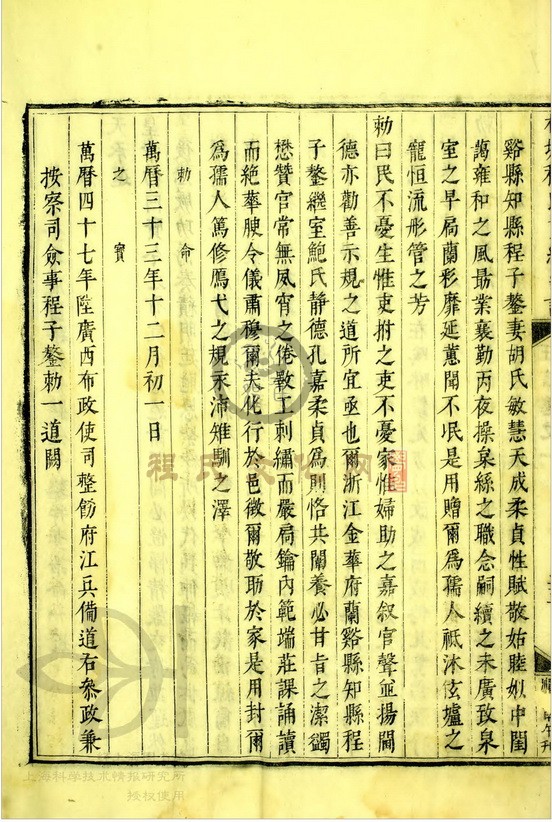 谿縣知縣程子鏊妻胡氏敏慧天成柔貞性賦敬姑睦姒中閨
藹雍和之風勗業襄勤丙夜操枲絲之職念嗣續之未廣致泉
室之早扃蘭彩靡延蕙聞不泯是用贈爾為孺人祇沐玄壚之
寵恒流彤管之芳
勑曰民不憂生惟吏拊之吏不憂家惟婦助之嘉敘官聲並揚閫
德亦勸善示規之道所宜亟也爾浙江金華府蘭谿縣知縣程
子鏊繼室鮑氏靜德孔嘉柔貞為則恪共闈養必甘旨之潔蠲
懋贊官常無夙宵之倦斁工刺繡而嚴扃鑰內範端莊課誦讀
而絕葷腴令儀肅穆爾夫化行於邑徵爾敬助於家是用封爾
為孺人篤修鴈弋之規永沛雉馴之澤
勑命
萬曆三十三年十二月初一日
之寶
萬曆四十七年陞廣西布政使司整飭府江兵備道右參政兼
按察司僉事程子鏊勑一道闕
程氏文化网
上海科学技术情报研究所
授权使用